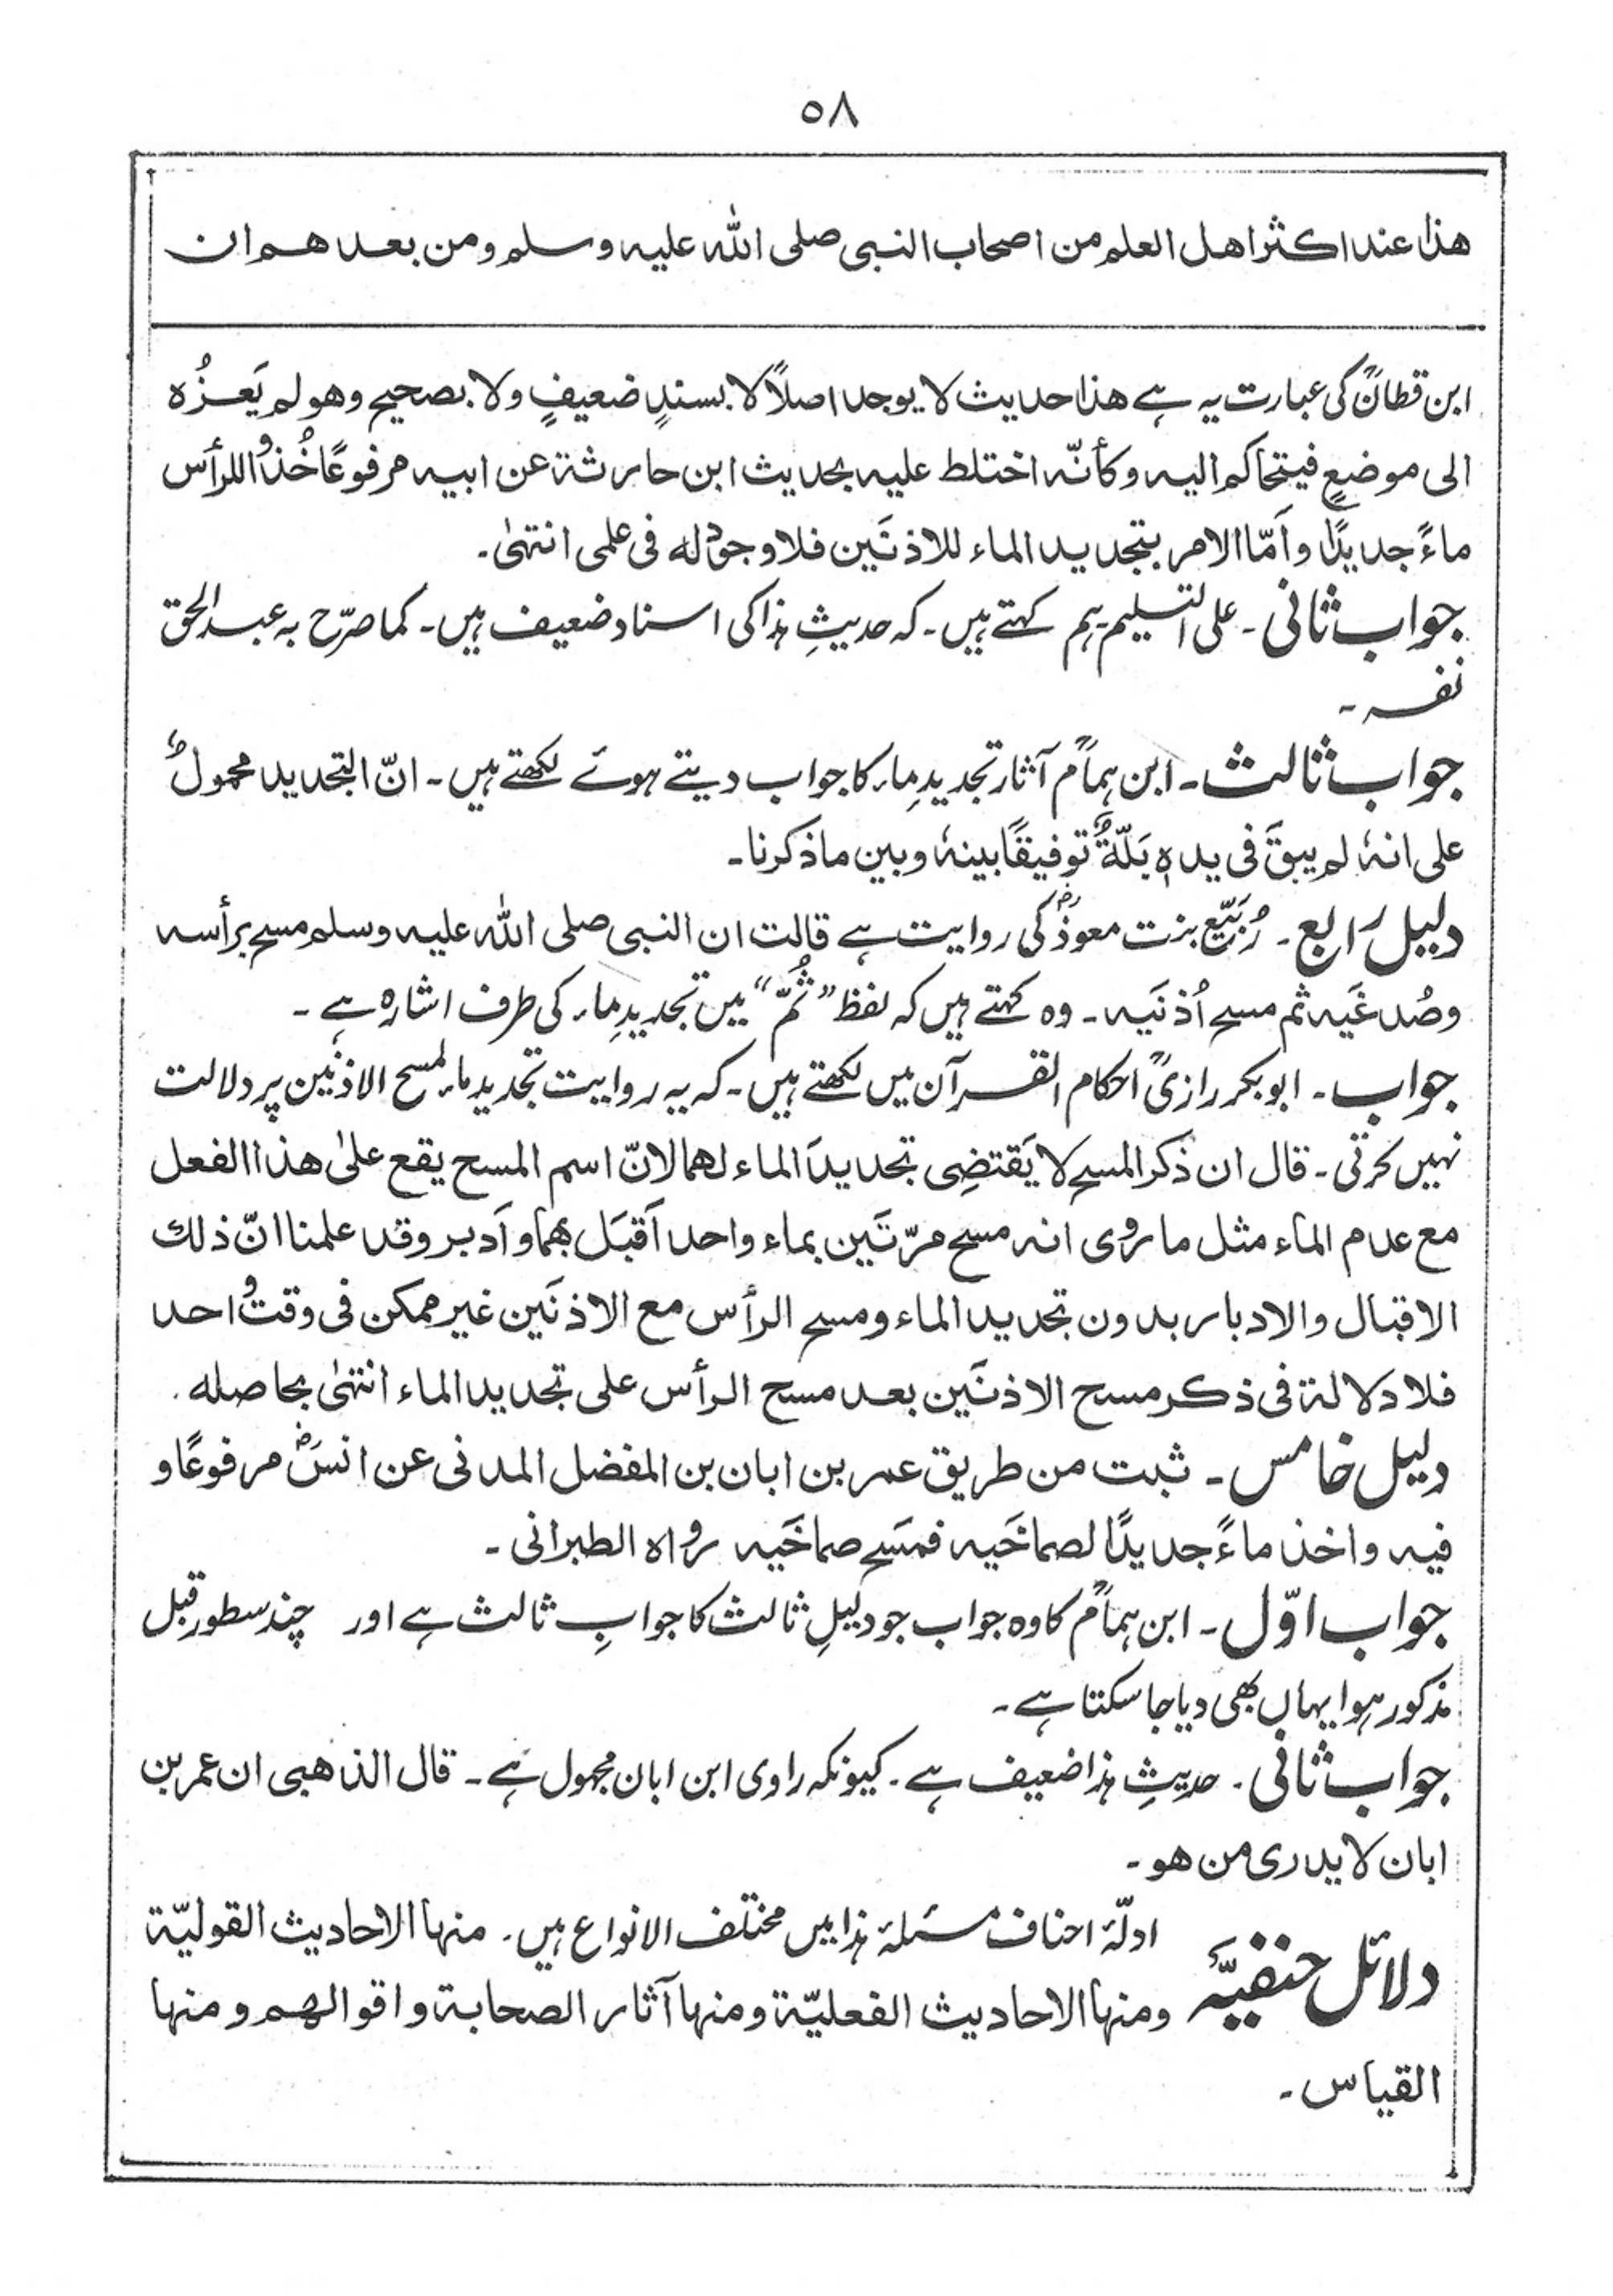 ۵۸
هذا عند اكثر اهل العلم من اصحاب النبى صلى الله عليه وسلم ومن بعد هم ان
ابن قطانؒ کی عبارت یہ ہے هذا حديث لا يوجد اصلاً لا بسندٍ ضعيفٍ ولا بصحيح وهو لم يَعزُه
الى موضعٍ فيتحاكم اليه وكأنّه اختلط عليه بحديث ابن حارثة عن ابيه مرفوعًا خُذوا للرأس
ماءً جديدًا وأمّا الامر بتجديد الماء للاذنَين فلا وجود له فى علمى انتهىٰ۔
جواب ثانی۔ علی التسلیم ہم کہتے ہیں۔ کہ حدیثِ ہذا کی اسناد ضعیف ہیں۔ کما صرّح بہ عبدالحق
نفسہ۔
جواب ثالث۔ ابن ہمامؒ آثار تجدیدِ ماء کا جواب دیتے ہوئے لکھتے ہیں۔ انّ التجديد محمولٌ
على انهٗ لم يبقَ فى يده بَلّةٌ توفيقًا بينهٗ وبين ما ذكرنا۔
دلیل رابع۔ رُبَیِّع بنت معوذؓ کی روایت ہے قالت ان النبى صلى الله عليه وسلم مسح برأسه
وصُدغَيه ثم مسح اُذنَيه۔ وہ کہتے ہیں کہ لفظ ”ثُمّ“ میں تجدیدِ ماء کی طرف اشارہ ہے۔
جواب۔ ابوبکر رازیؒ احکام القرآن میں لکھتے ہیں۔ کہ یہ روایت تجدید ماء لمسح الاذنین پر دلالت
نہیں کرتی۔ قال ان ذكر المسح لا يَقتضِى تجديدَ الماء لهما لانّ اسم المسح يقع علىٰ هذا الفعل
مع عدم الماء مثل ما روى انه مسح مرّتَين بماء واحد اَقبَل بهما واَدبر وقد علمنا انّ ذلك
الاقبال والادبار بدون تجديد الماء ومسح الرأس مع الاذنَين غير ممكن فى وقت واحد
فلا دلالة فى ذكر مسح الاذنَين بعد مسح الرأس على تجديد الماء انتهىٰ بحاصله۔
دلیل خامس۔ ثبت من طريق عمر بن ابان بن المفضل المدنى عن انسؓ مرفوعًا و
فيه واخذ ماءً جديدًا لصماخَيه فمسَح صماخَيه رواه الطبرانى۔
جواب اوّل۔ ابن ہمامؒ کا وہ جواب جو دلیلِ ثالث کا جوابِ ثالث ہے اور چند سطور قبل
مذکور ہوا یہاں بھی دیا جا سکتا ہے۔
جواب ثانی۔ حدیثِ ہذا ضعیف ہے۔ کیونکہ راوی ابن ابان مجہول ہے۔ قال الذهبى ان عمر بن
ابان لا يدرى من هو۔
دلائل حنفیہ ادلّۂ احناف مسئلۂ ہذا میں مختلف الانواع ہیں۔ منها الاحاديث القوليّة
ومنها الاحاديث الفعليّة ومنها آثار الصحابة واقوالهم ومنها
القياس۔